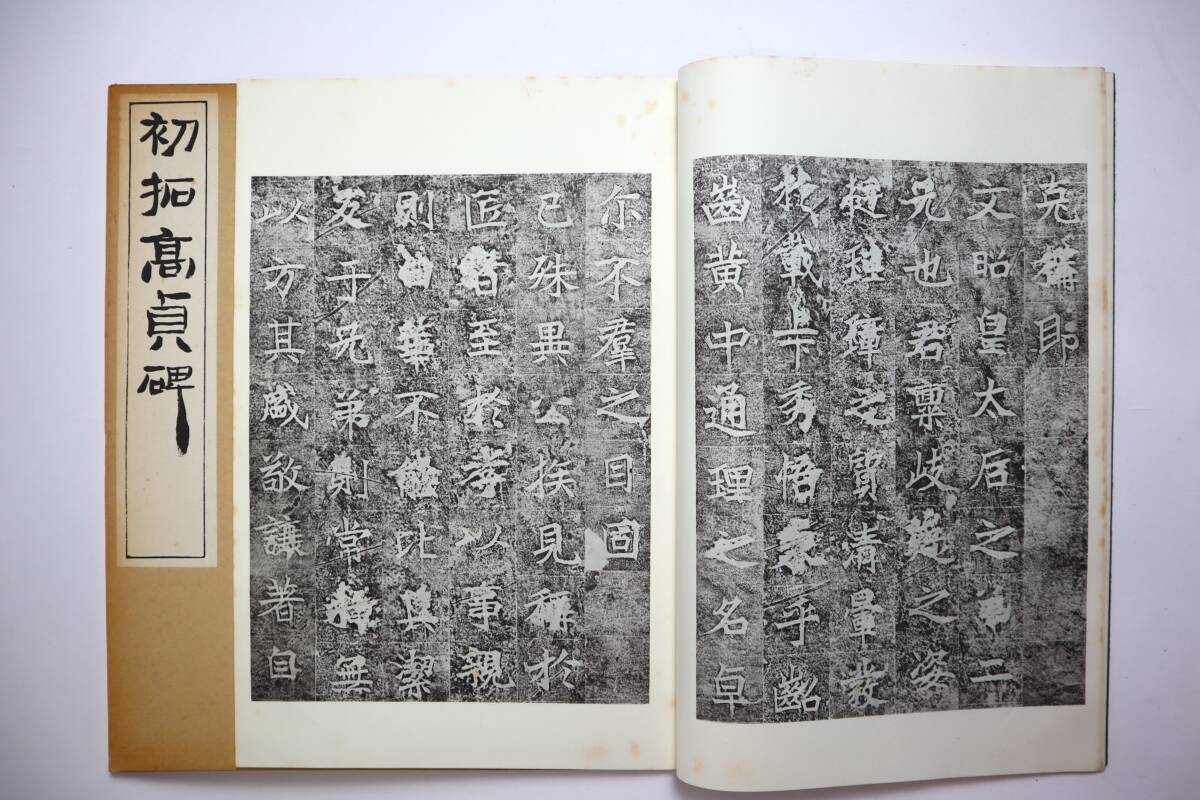 克構即
文昭皇太后之弟二
兄也君稟岐嶷之姿
挺珪璋之質清暈發
於載卞秀悟表乎齠
齒黃中通理之名卓
尔不羣之目固
已殊異公族見稱於
匠者至於孝以事親
則白華不能比其潔
友于兄弟則常棣無
以方其盛敬讓著自
初拓髙貞碑